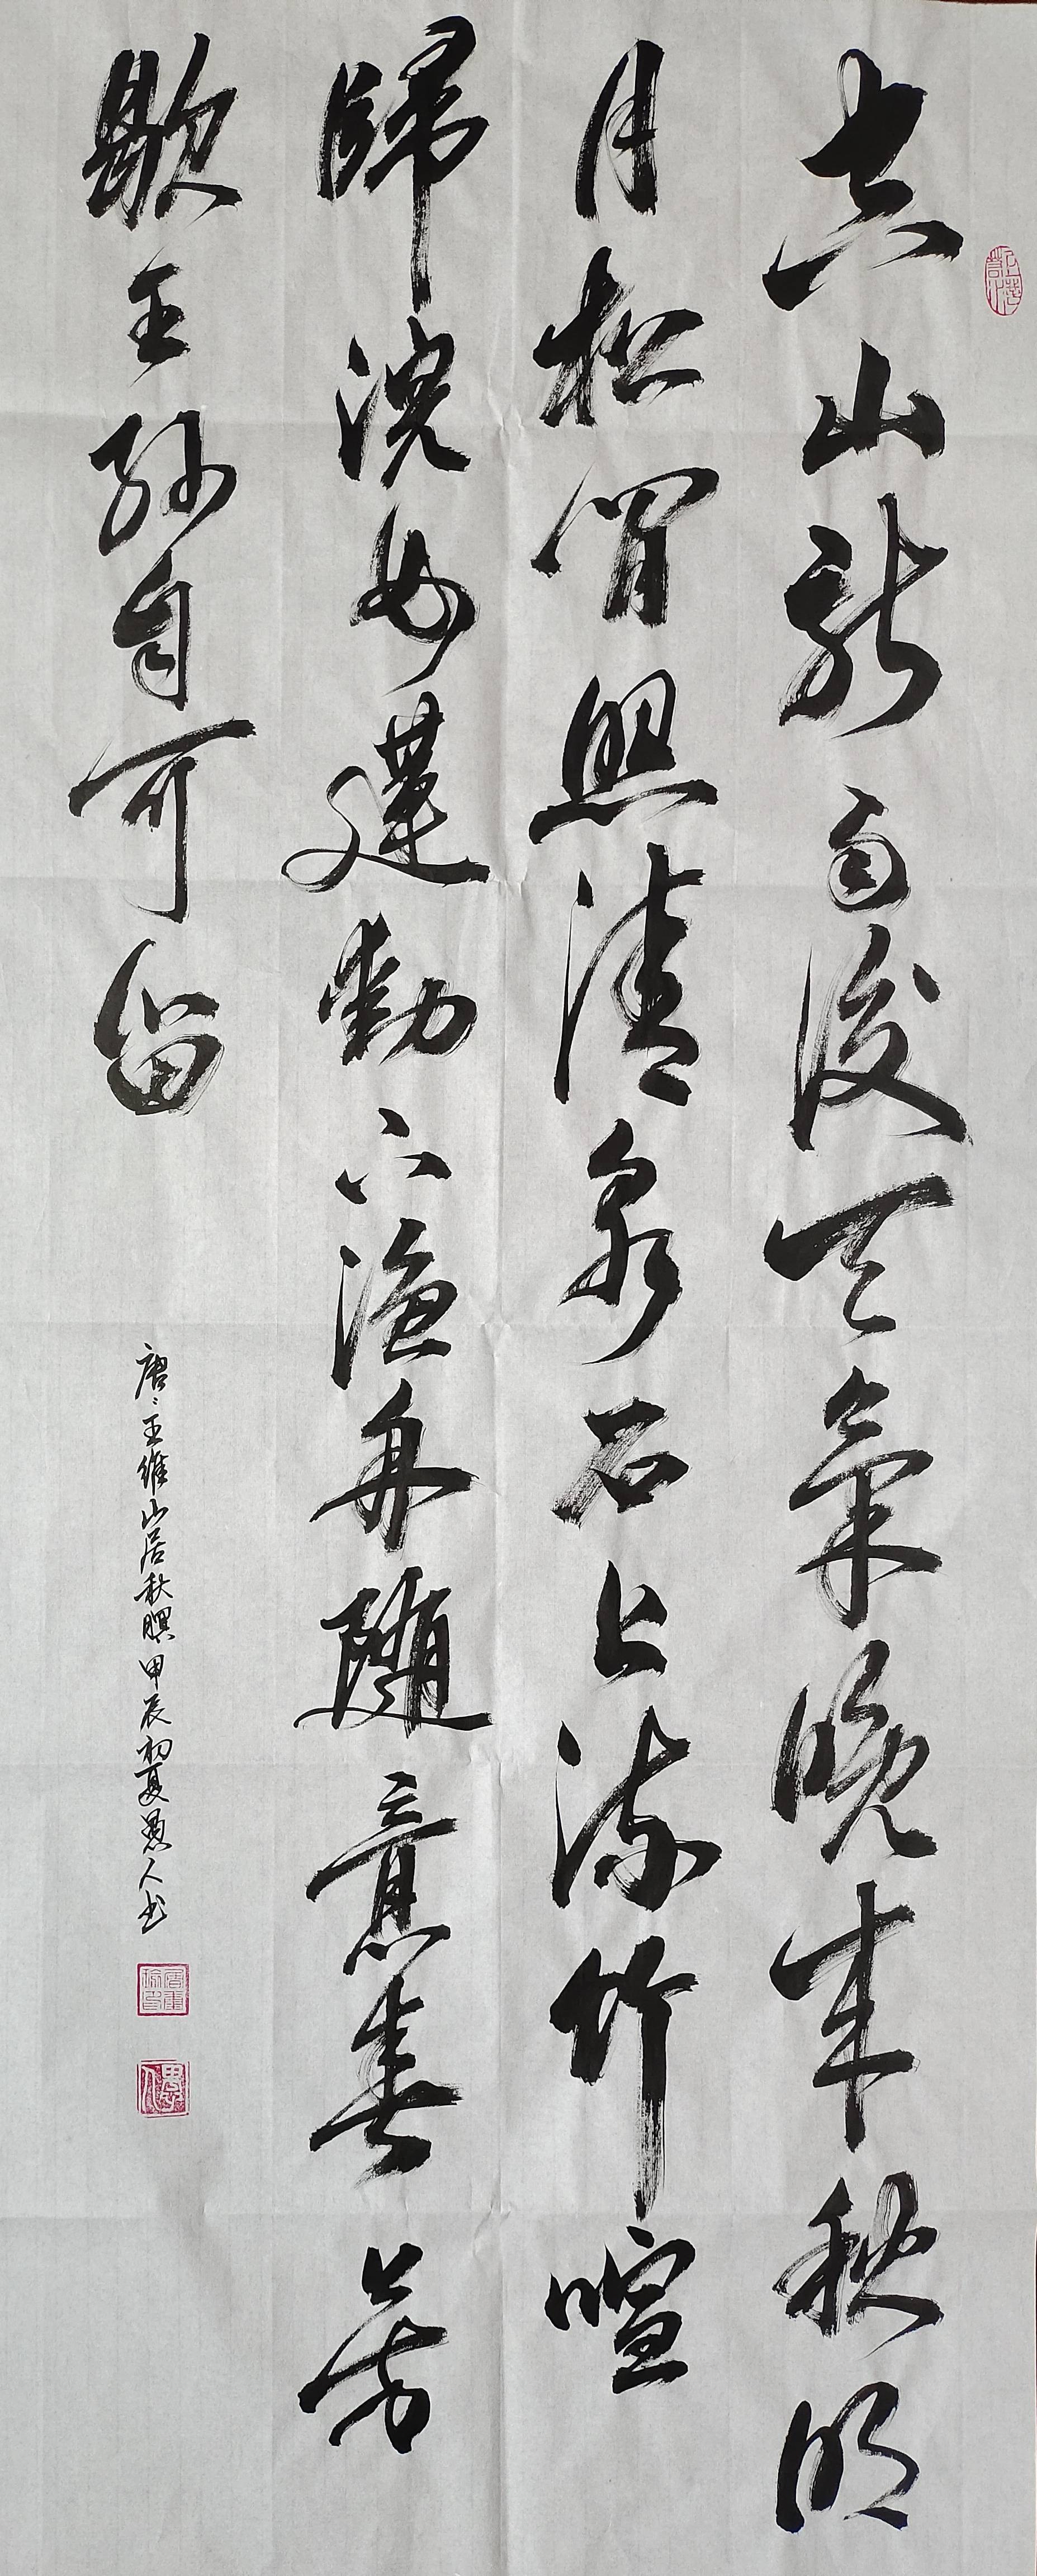 空山新雨後天氣晚來秋明
月松間照清泉石上流竹喧
歸浣女蓮動下漁舟隨意春芳
歇王孫自可留
唐王維山居秋暝甲辰初夏愚人書
愚人